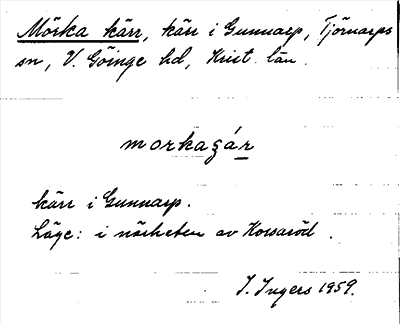 Mörka kärr, kärr i Gunnarp, Tjörnarps
sn, V. Göinge hd, Krist. län.
morkaşár
kärr i Gunnarp.
Läge: i närheten av Korsaröd.
I. Ingers 1959.